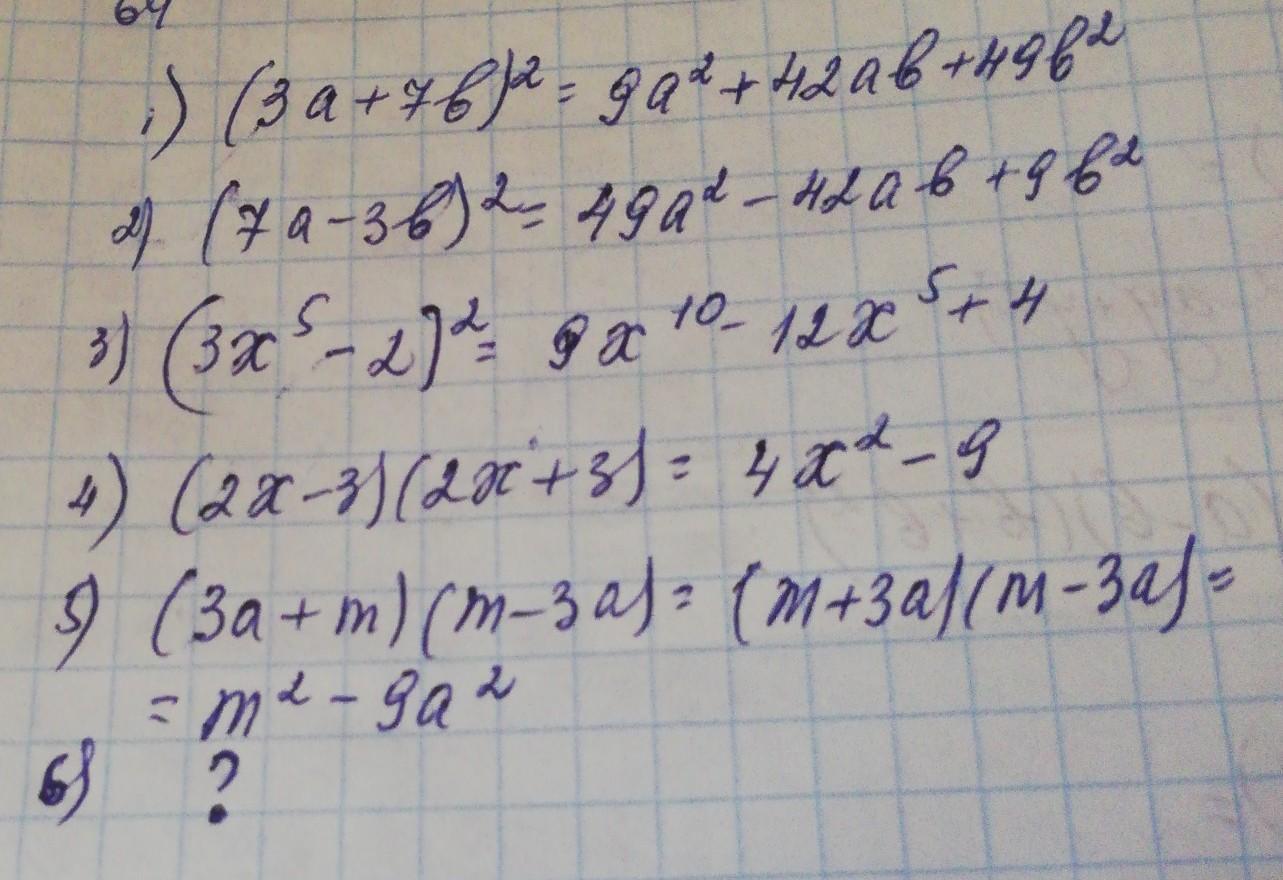 64
1) (3a+7b)² = 9a²+42ab+49b²
2) (7a-3b)² = 49a²-42ab+9b²
3) (3x⁵-2)² = 9x¹⁰-12x⁵+4
4) (2x-3)(2x+3) = 4x²-9
5) (3a+m)(m-3a) = (m+3a)(m-3a) =
= m²-9a²
6) ?